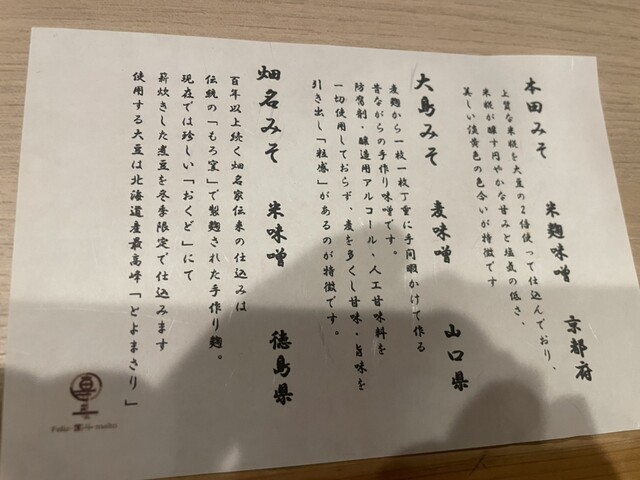 本田みそ 米麹味噌 京都府
上質な米糀を大豆の2倍使って仕込んでおり、
米糀が醸す円やかな甘みと塩気の低さ、
美しい淡黄色の色合いが特徴です
大島みそ 麦味噌 山口県
麦麹から一枚一枚丁重に手間暇かけて作る
昔ながらの手作り味噌です。
防腐剤・醸造用アルコール・人工甘味料を
一切使用しておらず、麦を多くし甘味・旨味を
引き出し「粒感」があるのが特徴です。
畑名みそ 米味噌 徳島県
百年以上続く畑名家伝来の仕込みは
伝統の「もろ窯」で製麹された手作り麹。
現在では珍しい「おくど」にて
薪炊きした煮豆を冬季限定で仕込みます
使用する大豆は北海道産最高峰「とよまさり」